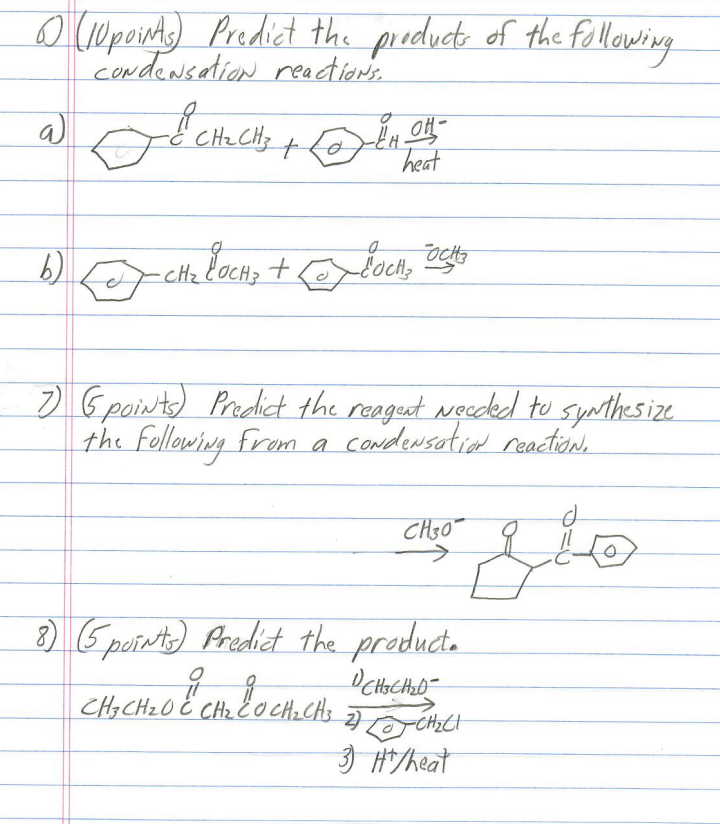 6) (10 points) Predict the products of the following
condensation reactions.
a) O C CH2CH3 + O CH OH-
heat
b) CH2 O COCH3 + O COCH3 -OCH3
7) (5 points) Predict the reagent needed to synthesize
the following from a condensation reaction.
CH3O- O O C
8) (5 points) Predict the product.
O O 1) CH3CH2O-
CH3CH2OC CH2 COCH2CH3 2) CH2Cl
3) H+/heat